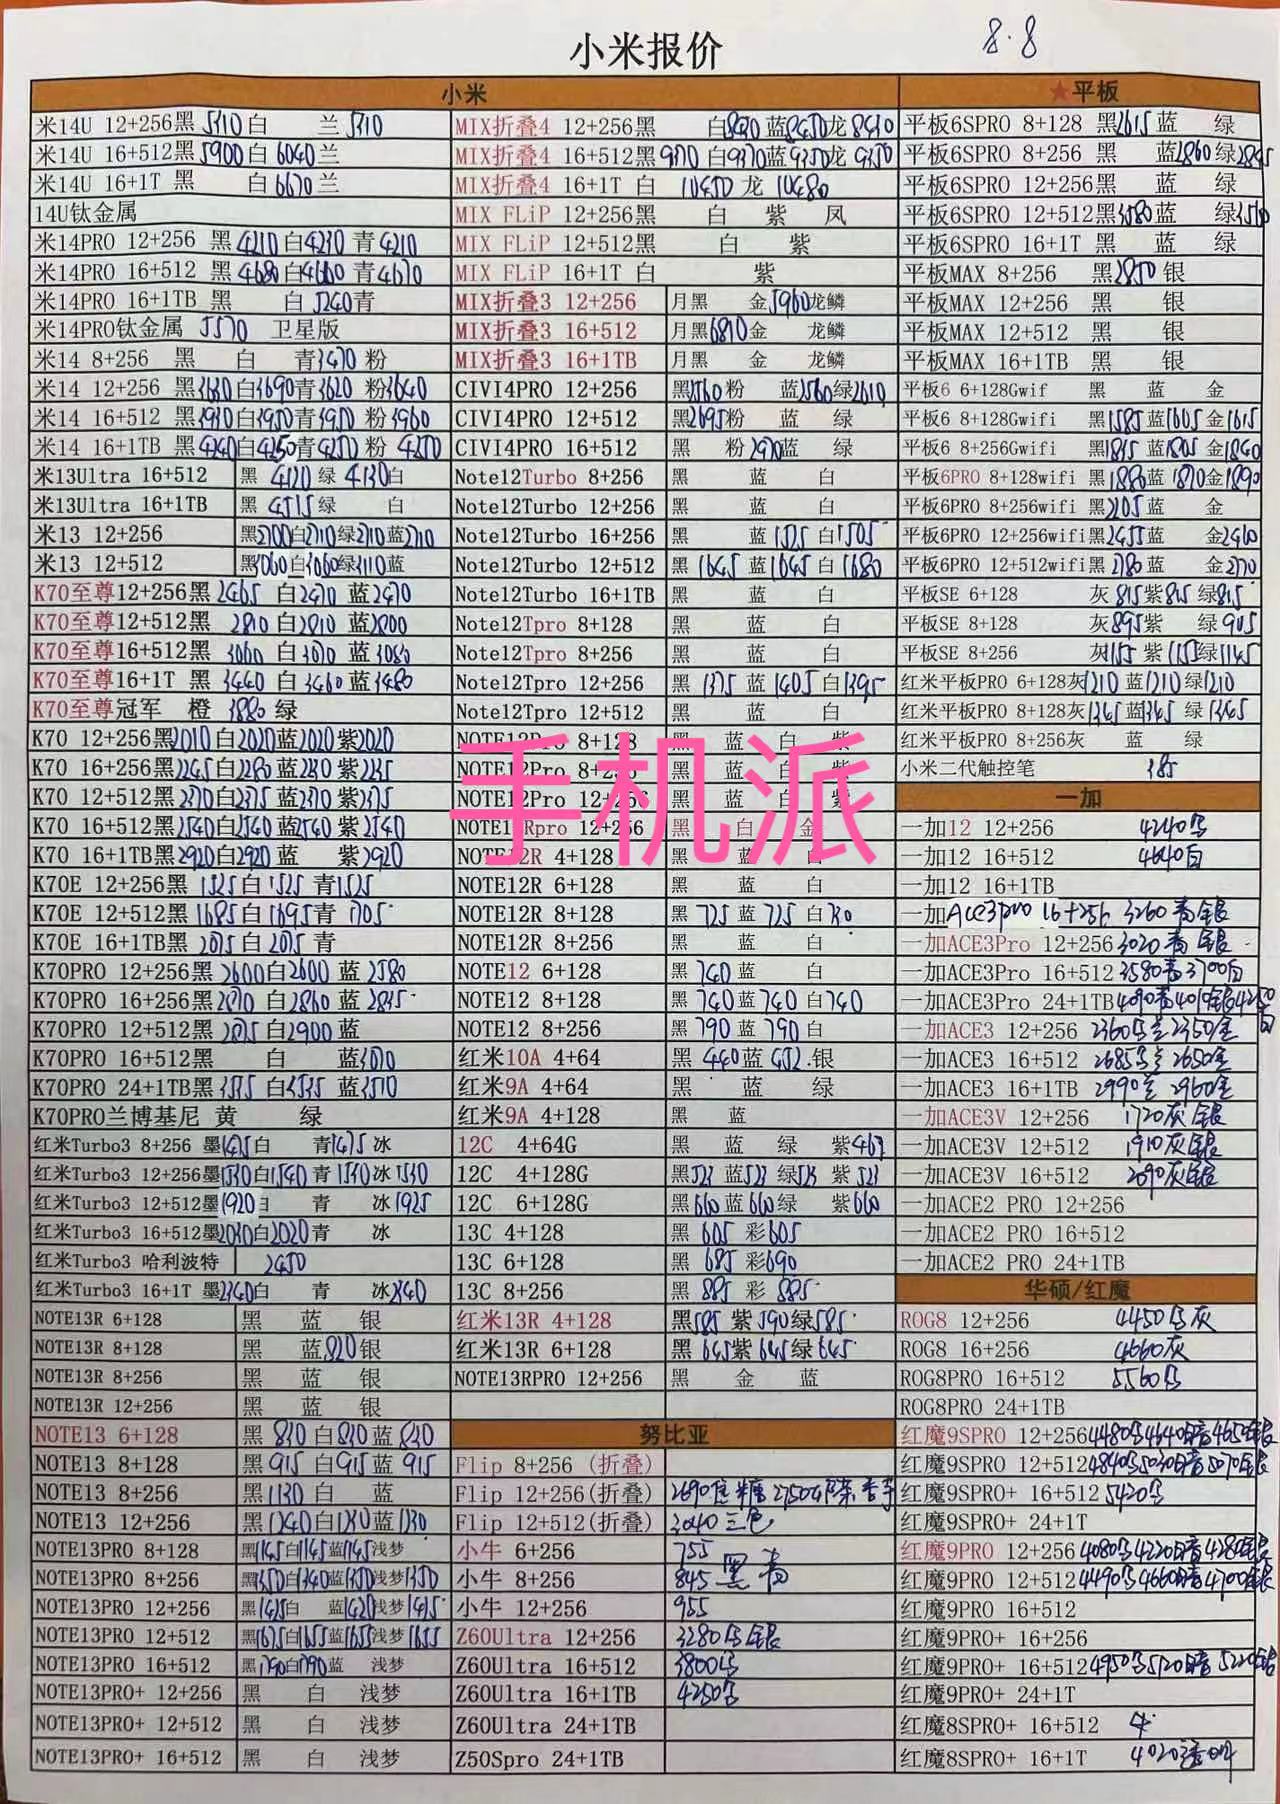 小米报价
8.8
小米
米14U 12+256黑 5710 白 兰 5710
米14U 16+512黑 5900 白 6040 兰
米14U 16+1T 黑 白 6670 兰
14U钛金属
米14PRO 12+256 黑 4210 白 4230 青 4210
米14PRO 16+512 黑 4680 白 4660 青 4670
米14PRO 16+1TB 黑 白 5240 青
米14PRO钛金属 5570 卫星版
米14 8+256 黑 白 青 3470 粉
米14 12+256 黑 白3690青3620 粉3640
米14 16+512 黑3930白3950青3950 粉3960
米14 16+1TB 黑4240白4250青4250 粉 4250
米13Ultra 16+512 黑 4120 绿 4130白
米13Ultra 16+1TB 黑 4515 绿 白
米13 12+256 黑2700白2710绿2710蓝2710
米13 12+512 黑3060白3060绿3110蓝
K70至尊12+256黑 2465 白2470 蓝2470
K70至尊12+512黑 2810 白2810 蓝2800
K70至尊16+512黑 3060 白 3070 蓝 3080
K70至尊16+1T 黑 3440 白 3460 蓝3480
K70至尊冠军 橙 3880 绿
K70 12+256黑2010白2020蓝2020紫2020
K70 16+256黑2245白2230蓝2230紫2235
K70 12+512黑2370白2375蓝2370紫2375
K70 16+512黑2540白2540蓝2540紫2540
K70 16+1TB黑2920白2920蓝 紫2920
K70E 12+256黑 1525白 1525 青1525
K70E 12+512黑 1685白1695青 1705
K70E 16+1TB黑 2075白 2075 青
K70PRO 12+256黑 2600白2600 蓝 2580
K70PRO 16+256黑2870 白2860 蓝 2835
K70PRO 12+512黑 白2900 蓝
K70PRO 16+512黑 白 蓝3070
K70PRO 24+1TB黑3535 白3535 蓝3570
K70PRO兰博基尼 黄 绿
红米Turbo3 8+256 墨1475白 青1475 冰
红米Turbo3 12+256墨1530白1540 青1530冰1530
红米Turbo3 12+512墨1920 青 冰1925
红米Turbo3 16+512墨2030白2020青 冰
红米Turbo3 哈利波特 2450
红米Turbo3 16+1T 墨2340白 青 冰2340
NOTE13R 6+128 黑 蓝 银
NOTE13R 8+128 黑 蓝820银
NOTE13R 8+256 黑 蓝 银
NOTE13R 12+256 黑 蓝 银
NOTE13 6+128 黑 830 白830 蓝 830
NOTE13 8+128 黑 915 白915 蓝 915
NOTE13 8+256 黑1130 白 蓝
NOTE13 12+256 黑1240白1230蓝1230
NOTE13PRO 8+128 黑1145白1145蓝1145浅梦
NOTE13PRO 8+256 黑1350白1340蓝1350浅梦1350
NOTE13PRO 12+256 黑1425白 蓝1425浅梦1425
NOTE13PRO 12+512 黑1675白1655蓝1655浅梦1655
NOTE13PRO 16+512 黑1790白1790蓝 浅梦
NOTE13PRO+ 12+256 黑 白 浅梦
NOTE13PRO+ 12+512 黑 白 浅梦
NOTE13PRO+ 16+512 黑 白 浅梦
MIX折叠4 12+256黑 白8430 蓝8450龙8410
MIX折叠4 16+512黑9370 白9370蓝9350龙 9350
MIX折叠4 16+1T 白 10450 龙 10480
MIX FLiP 12+256黑 白 紫 凤
MIX FLiP 12+512黑 白 紫
MIX FLiP 16+1T 白 紫
MIX折叠3 12+256 月黑 金5960龙鳞
MIX折叠3 16+512 月黑6810金 龙鳞
MIX折叠3 16+1TB 月黑 金 龙鳞
CIVI4PRO 12+256 黑2560粉 蓝2560绿2610
CIVI4PRO 12+512 黑2695粉 蓝 绿
CIVI4PRO 16+512 黑 粉2970蓝 绿
Note12Turbo 8+256 黑 蓝 白
Note12Turbo 12+256 黑 蓝 白
Note12Turbo 16+256 黑 蓝1525白1505
Note12Turbo 12+512 黑 1645 蓝1645 白 1680
Note12Turbo 16+1TB 黑 蓝 白
Note12Tpro 8+128 黑 蓝 白
Note12Tpro 8+256 黑 蓝 白
Note12Tpro 12+256 黑 1375 蓝 1405 白1395
Note12Tpro 12+512 黑 蓝 白
NOTE12Pro 8+128 黑 蓝 白 紫
NOTE12Pro 8+256 黑 蓝 白 紫
NOTE12Pro 12+256 黑 蓝 白 紫
Rpro 12+256 黑 白 金
NOTE12R 4+128 黑 蓝 白
NOTE12R 6+128 黑 蓝 白
NOTE12R 8+128 黑 725 蓝 725 白730
NOTE12R 8+256 黑 蓝 白
NOTE12 6+128 黑 740 蓝 白
NOTE12 8+128 黑 740蓝 740 白740
NOTE12 8+256 黑 790 蓝 790 白
红米10A 4+64 黑 440蓝 452 银
红米9A 4+64 黑 蓝 绿
红米9A 4+128 黑 蓝
12C 4+64G 黑 蓝 绿 紫463
12C 4+128G 黑523 蓝523 绿523 紫 523
12C 6+128G 黑660蓝660绿 紫660
13C 4+128 黑 605 彩605
13C 6+128 黑 685 彩690
13C 8+256 黑 885 彩 885
红米13R 4+128 黑585 紫590绿585
红米13R 6+128 黑645紫645绿645
NOTE13RPRO 12+256 黑 金 蓝
努比亚
Flip 8+256 (折叠)
Flip 12+256(折叠) 2690焦糖 2750
Flip 12+512(折叠) 3040 三色
小牛 6+256 755
小牛 8+256 845 黑 青
小牛 12+256 955
Z60Ultra 12+256 3280 银
Z60Ultra 16+512 3800
Z60Ultra 16+1TB 4250
Z60Ultra 24+1TB
Z50Spro 24+1TB
★平板
平板6SPRO 8+128 黑2615蓝 绿
平板6SPRO 8+256 黑 蓝2860绿
平板6SPRO 12+256黑 蓝 绿
平板6SPRO 12+512黑3580蓝 绿
平板6SPRO 16+1T 黑 蓝 绿
平板MAX 8+256 黑2850 银
平板MAX 12+256 黑 银
平板MAX 12+512 黑 银
平板MAX 16+1TB 黑 银
平板6 6+128Gwif 黑 蓝 金
平板6 8+128Gwifi 黑1585蓝1605金1615
平板6 8+256Gwifi 黑1815 蓝1805 金1840
平板6PRO 8+128wifi 黑1880蓝 1870金1890
平板6PRO 8+256wifi 黑2105蓝 金
平板6PRO 12+256wifi黑2455蓝 金2460
平板6PRO 12+512wifi黑2780蓝 金2770
平板SE 6+128 灰 815紫815 绿815
平板SE 8+128 灰895紫 绿905
平板SE 8+256 灰1155 紫1155绿1145
红米平板PRO 6+128灰1210 蓝1210 绿1210
红米平板PRO 8+128灰1345 蓝1345 绿1345
红米平板PRO 8+256灰 蓝 绿
小米二代触控笔 385
一加
一加12 12+256 4240
一加12 16+512 4640白
一加12 16+1TB
一加Ace3pro 16+256 3260 青银
一加ACE3Pro 12+256 3020 青 银
一加ACE3Pro 16+512 3580青3700白
一加ACE3Pro 24+1TB 4090青 银4250白
一加ACE3 12+256 2360 2350金
一加ACE3 16+512 2685 2650金
一加ACE3 16+1TB 2990兰 2960金
一加ACE3V 12+256 1720灰 银
一加ACE3V 12+512 1910灰银
一加ACE3V 16+512 2090灰银
一加ACE2 PRO 12+256
一加ACE2 PRO 16+512
一加ACE2 PRO 24+1TB
华硕/红魔
ROG8 12+256 4450 灰
ROG8 16+256 4660灰
ROG8PRO 16+512 5560
ROG8PRO 24+1TB
红魔9SPRO 12+256 4480 4640暗 银
红魔9SPRO 12+512 4840 5030暗5070银
红魔9SPRO+ 16+512 5420
红魔9SPRO+ 24+1T
红魔9PRO 12+256 4080 4220暗 银
红魔9PRO 12+512 4490 4660暗4700银
红魔9PRO 16+512
红魔9PRO+ 16+256
红魔9PRO+ 16+512 4950 5170暗 5220银
红魔9PRO+ 24+1T
红魔8SPRO+ 16+512
红魔8SPRO+ 16+1T 4020透明
手机派